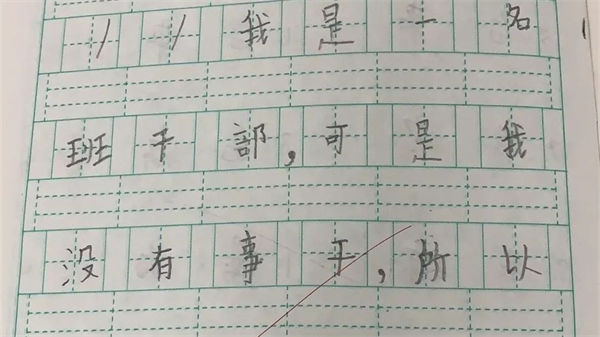 //我是一名
班干部,可是我
没有事干,所以